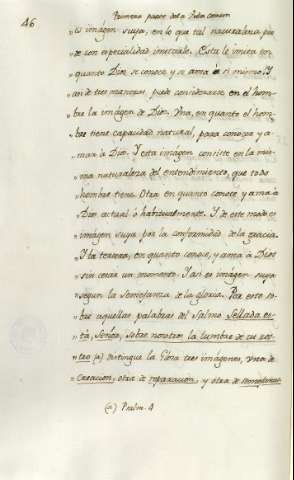 46
Primera parte de la
es imágen suya, en lo que tal naturaleza pue-
de con especialidad imitarle. Esta le imita en
quanto Dios se conoce y se ama à si mismo. Y
an de tres maneras, puede considerarse en el hom-
bre la imágen de Dios. Una, en quanto el hom-
bre tiene capacidad natural, para conocer y a-
mar à Dios. Y esta imágen consiste en la mis-
ma naturaleza del entendimiento, que todo
hombre tiene. Otra en quanto conoce y ama à
Dios actual ò habitualmente. Y de este modo es
imágen suya por la conformidad de la gracia.
Y la tercera, en quanto conoce, y ama à Dios
sin cesar un momento. Y asi es imágen suya
segun la semejanza de la gloria. Por esto so-
bre aquellas palabras del Salmo Sellada es-
tà, Señor, sobre nosotros la lumbre de tu ros-
tro (a) distingue la Glosa tres imágenes, una de
Creacion, otra de reparacion, y otra de semejanza
(a) Psalm. 4